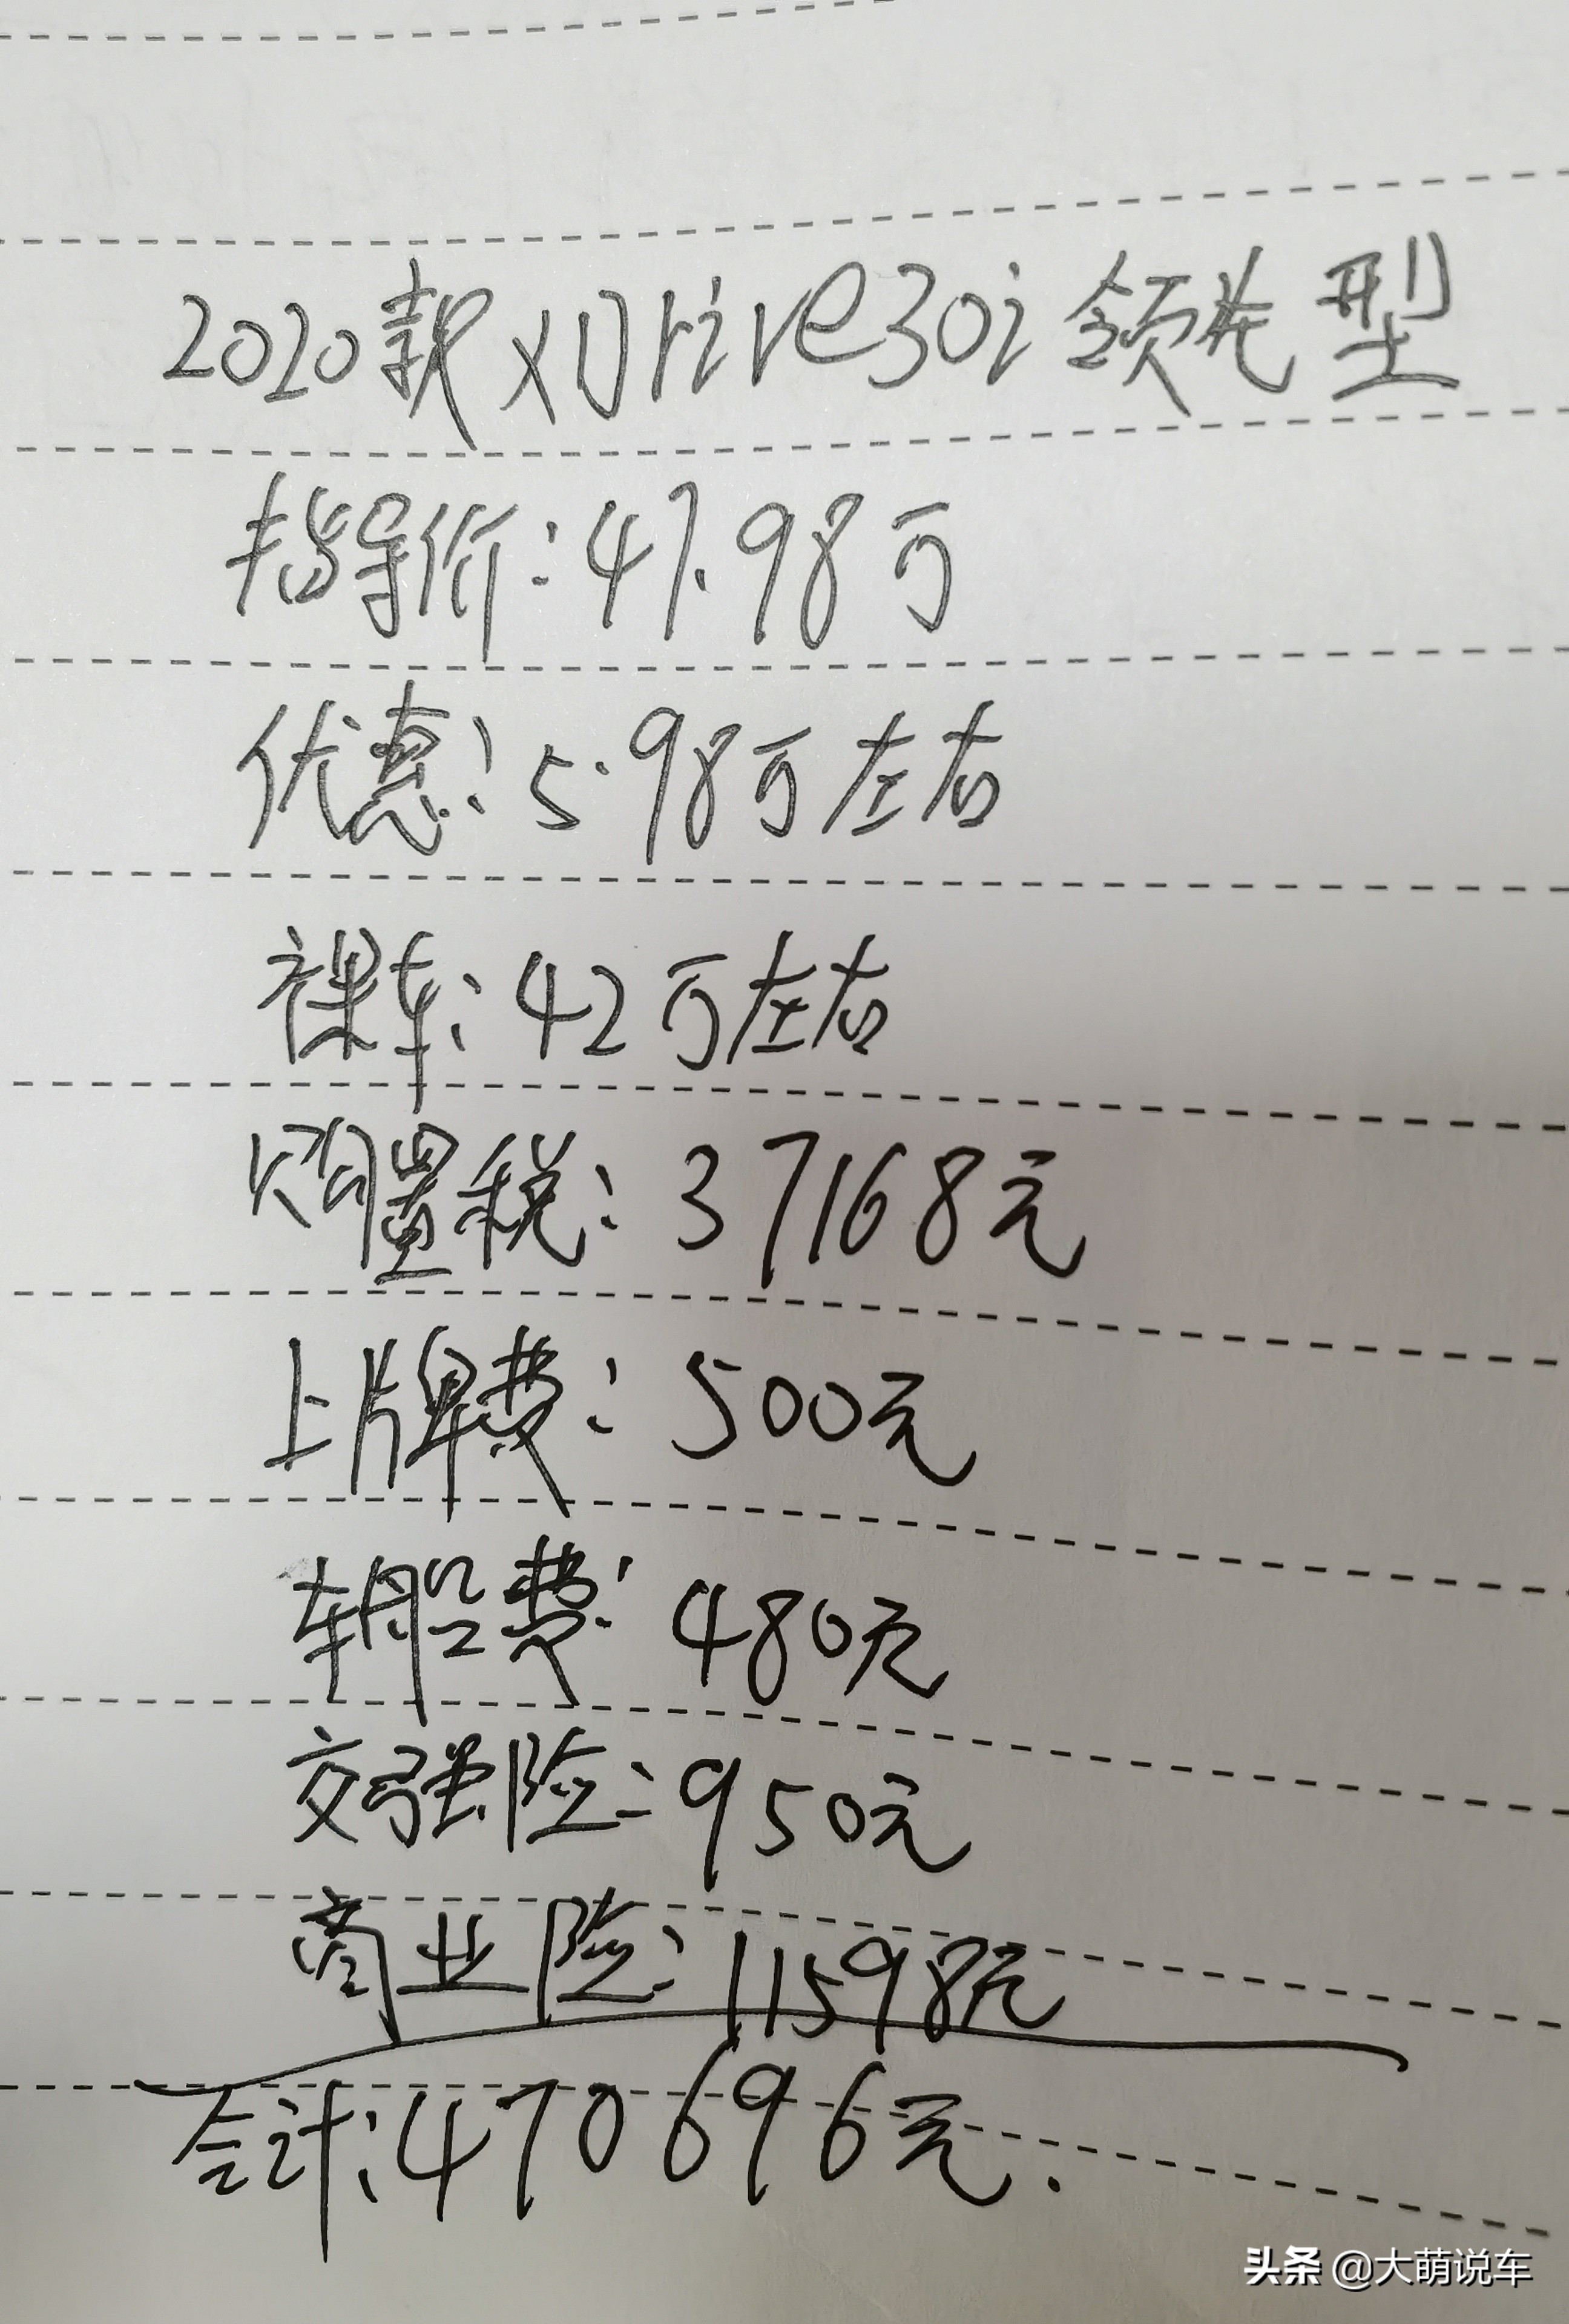 2020款xDrive30i领先型
指导价:47.98万
优惠:5.98万左右
裸车:42万左右
购置税:37168元
上牌费:500元
车船费:480元
交强险:950元
商业险:11598元
合计:470696元.
头条 @大萌说车